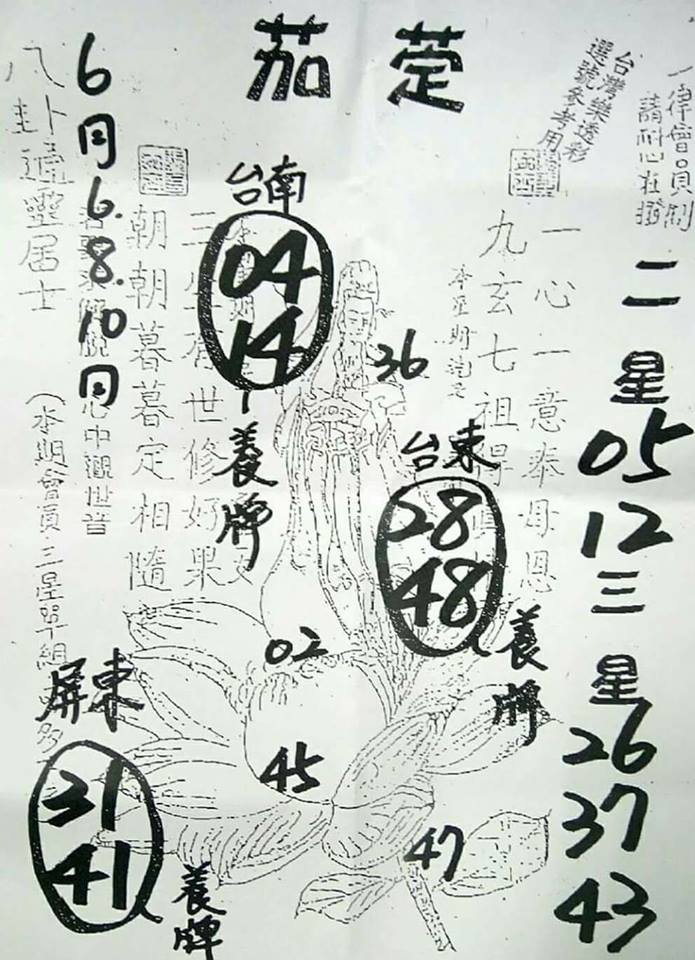 茄萣
台灣樂透彩
選號參考用
一律會員制
請耐心在撥
二星
05
12
三星
26
37
43
一心一意奉母恩
九玄七祖得
台南
04
14
養牌
36
台東
28
48
養牌
02
45
47
朝朝暮暮定相隨
世修好果
心中觀世音
6月6.8.10日
居士
(本期會員三星單組
屏東
31
41
養牌